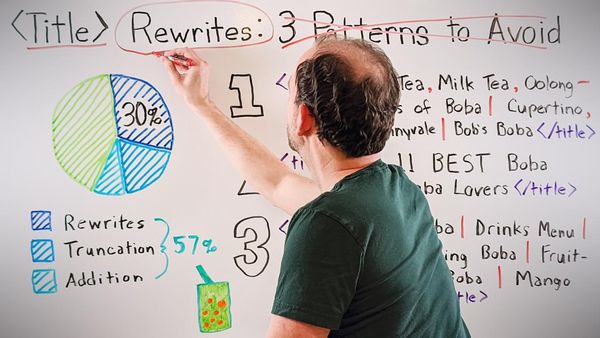 <Title> Rewrites: 3 Patterns to Avoid
30%
Rewrites
Truncation
Addition
57%
1
Tea, Milk Tea, Oolong-
s of Boba | Cupertino,
nnyvale | Bob's Boba </title>
11 BEST Boba
ba Lovers </title>
3
ba | Drinks Menu |
ing Boba | Fruit-
Boba | Mango
tle>